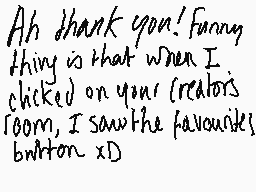 Ah thank you! Funny
thing is that when I
clicked on your Creator's
room, I saw the favourites
button xD